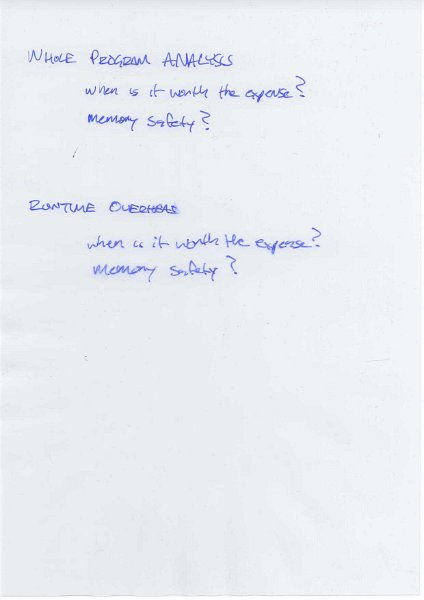 WHOLE PROGRAM ANALYSIS
when is it worth the expense?
memory safety?
RUNTIME OVERHEAD
when is it worth the expense?
memory safety?